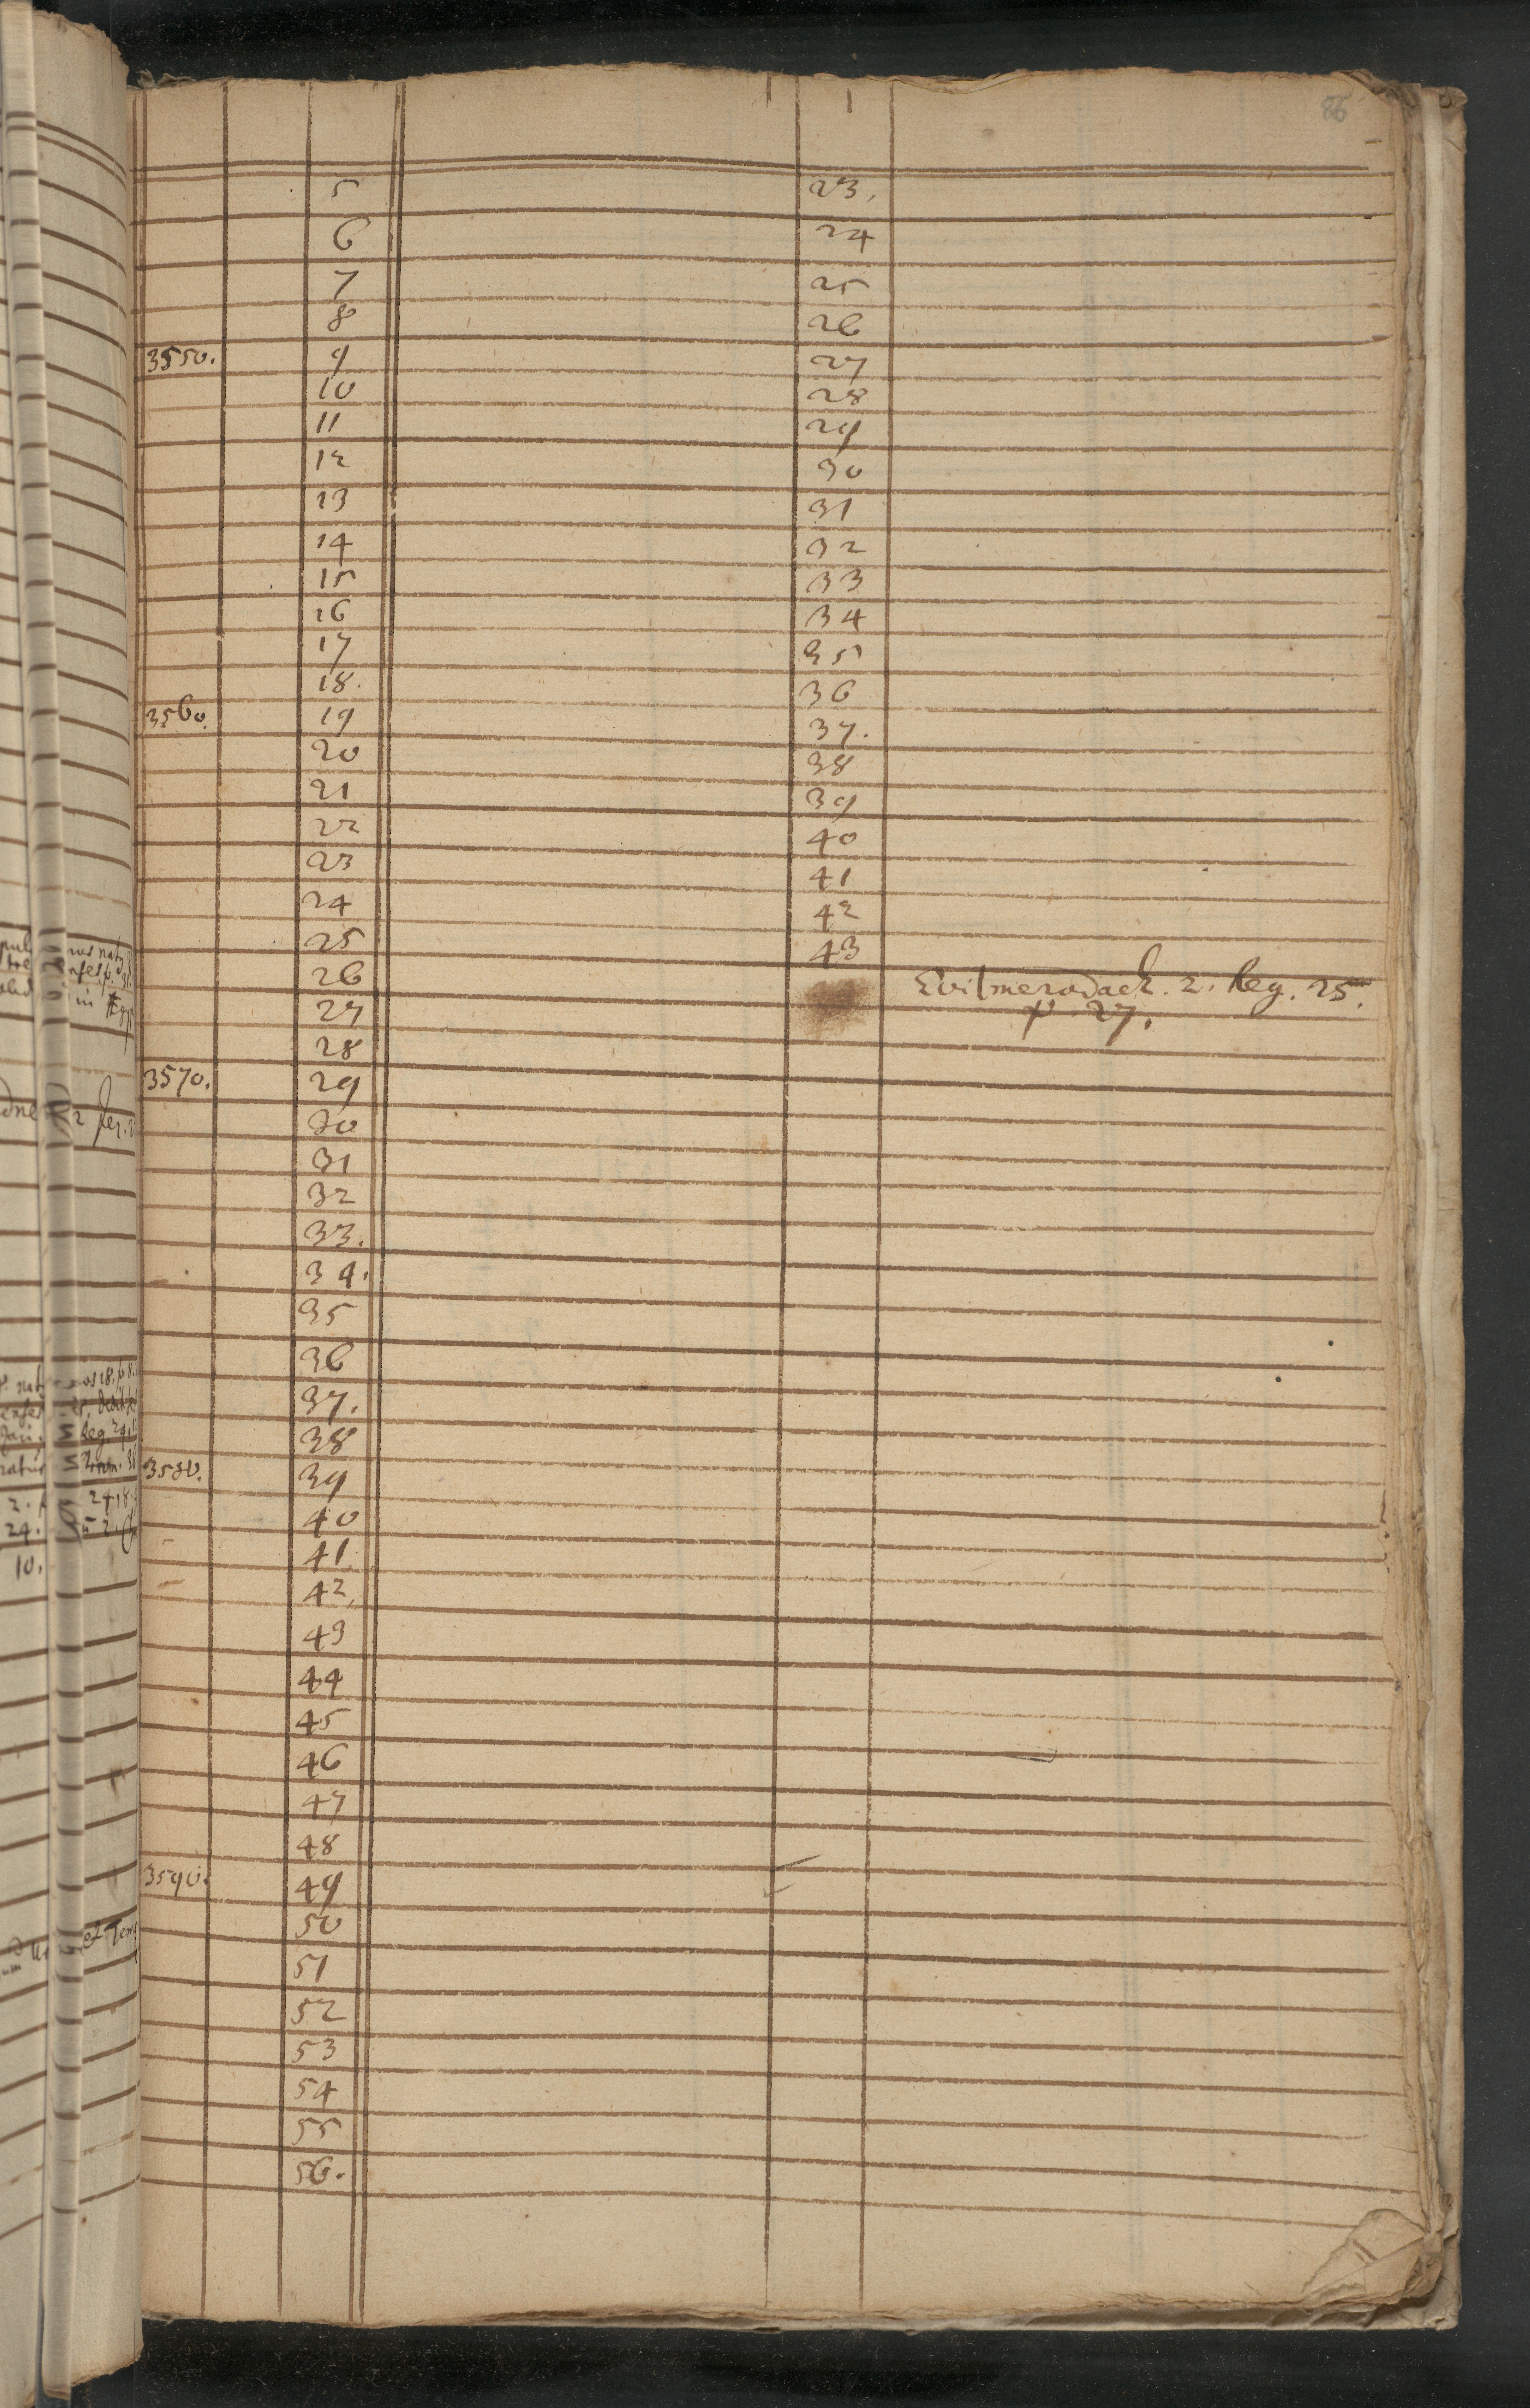 86
5 23.
6 24
7 25
8 26
3550. 9 27
10 28
11 29
12 30
13 31
14 32
15 33
16 34
17 35
18. 36
3560. 19 37.
20 38
21 39
22 40
23 41
24 42
25 43
26 Evilmerodach. 2. Reg. 25.
27 v. 27.
28
3570. 29
30
31
32
33.
34.
35
36
37.
38
3580. 39
40
41
42,
43
44
45
46
47
48
3590. 49
50
51
52
53
54
55
56.
in
24.
10.